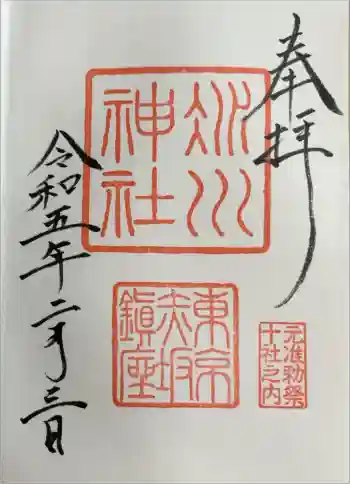 奉拝
氷川
神社
東京
赤坂
鎮座
元准勅祭
十社之内
令和五年二月三日